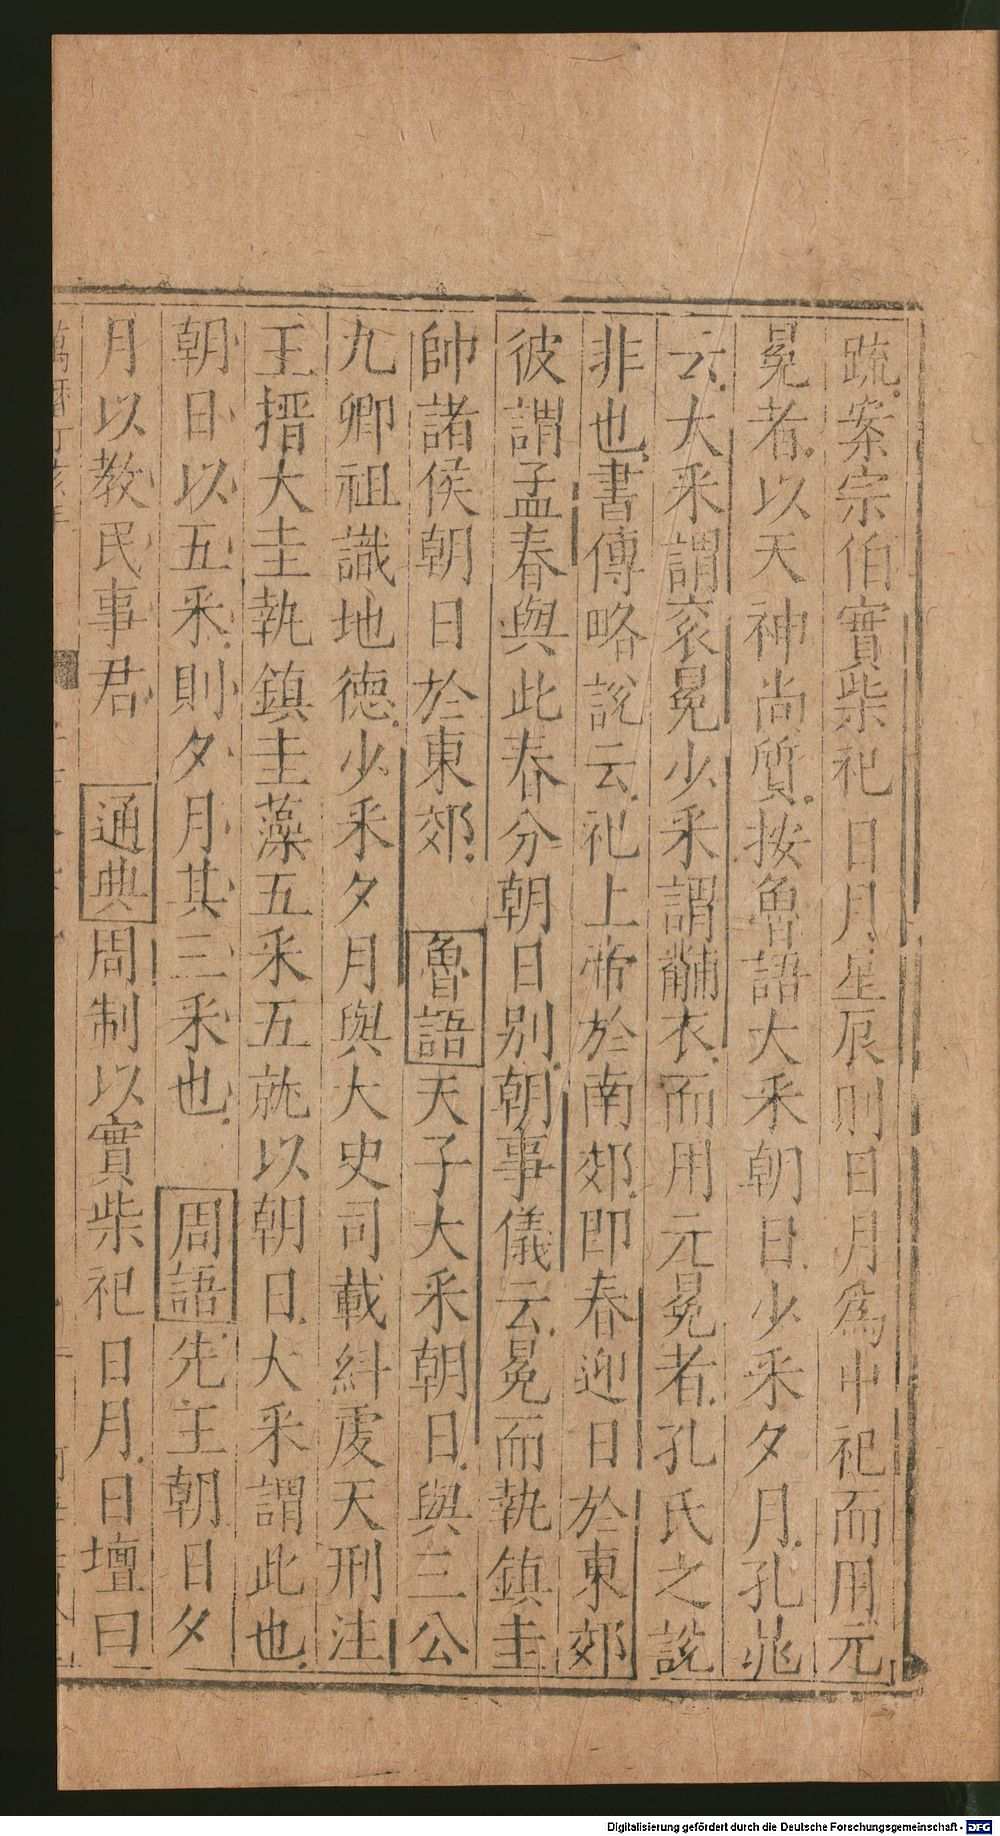 疏案宗伯實柴祀日月星辰則日月爲中祀而用元
冕者以天神尚質按魯語大采朝日少采夕月孔晁
云大采謂衮冕少采謂黼衣而用元冕者孔氏之說
非也書傳略說云祀上帝於南郊即春迎日於東郊
彼謂孟春與此春分朝日別朝事儀云冕而執鎮圭
帥諸侯朝日於東郊 魯語天子大采朝日與三公
九卿祖識地德少采夕月與大史司載糾虔天刑注
王搢大圭執鎮圭藻五采五就以朝日大采謂此也
朝日以五采則夕月其三采也 周語先王朝日夕
月以教民事君 通典周制以實柴祀日月日壇曰
Digitalisierung gefördert durch die Deutsche Forschungsgemeinschaft - DFG